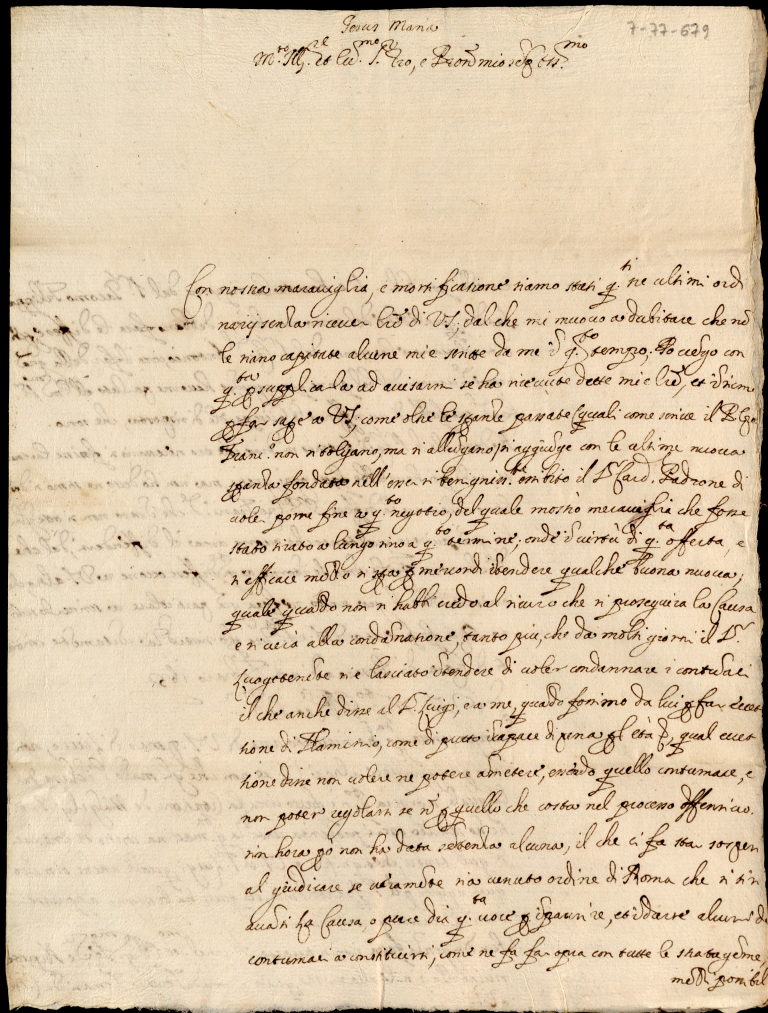 7-77-679
Jesus Maria
M.to Ill.re et Ecc.mo S.r Zio, e Pron mio
Con nostra maraviglia, e mortificatione siamo stati q.ti tre ultimi ordi
narij senza ricever lre di VS; dal che mi muovo a dubitare che nō
le siano capitate alcune mie scritte da me ī q.to tempo. Po vengo con
q.ta a supplicarla ad avisarmi se ha ricevute dette mie lre, et
far sape a VS; come oltre le stanze passate (quali come scrive il P. Lro
Franc.o non si sciolgano, ma si allongano) si aggiunge con le ultime nuova
fondata nell'essersi benigniss.te il S.r Card. Padrone di
voler porre fine a q.to negottio, del quale mostrò meraviglia che fosse
stato tirato a lungo sino a q.to termine; onde ī virtù di q.ta offerta, e
sì efficace modo si spa intendere qualche buona nuova;
quale quādo non si habbi credo al sicuro che si proseguirà la Causa
e si verrà alla condānatione, tanto più, che da molti giorni il S.r
Luogotenēte si è lasciato ītendere di voler condannare i contumaci
il che anche disse al S.r Luigi, e a me, quādo fossimo da lui p far eccet
tione di Flaminio, come di putto īcapace di pena p l'età, qual eccet
tione disse non volere ne potere admetere, essēdo quello contumace, e
non poter regolarsi se nō p quello che costa nel processo offensivo.
sin hora pò non ha data sētenza alcuna, il che ci fa star sospesi
al giudicare se veramēte sia venuto ordine di Roma che si tiri
avāti la Causa o pure dia q.ta voce p ispaurire, et īdurre alcuni de
contumaci a constituirsi, come ne fa far opra con tutte le stratageme,
modi possibil